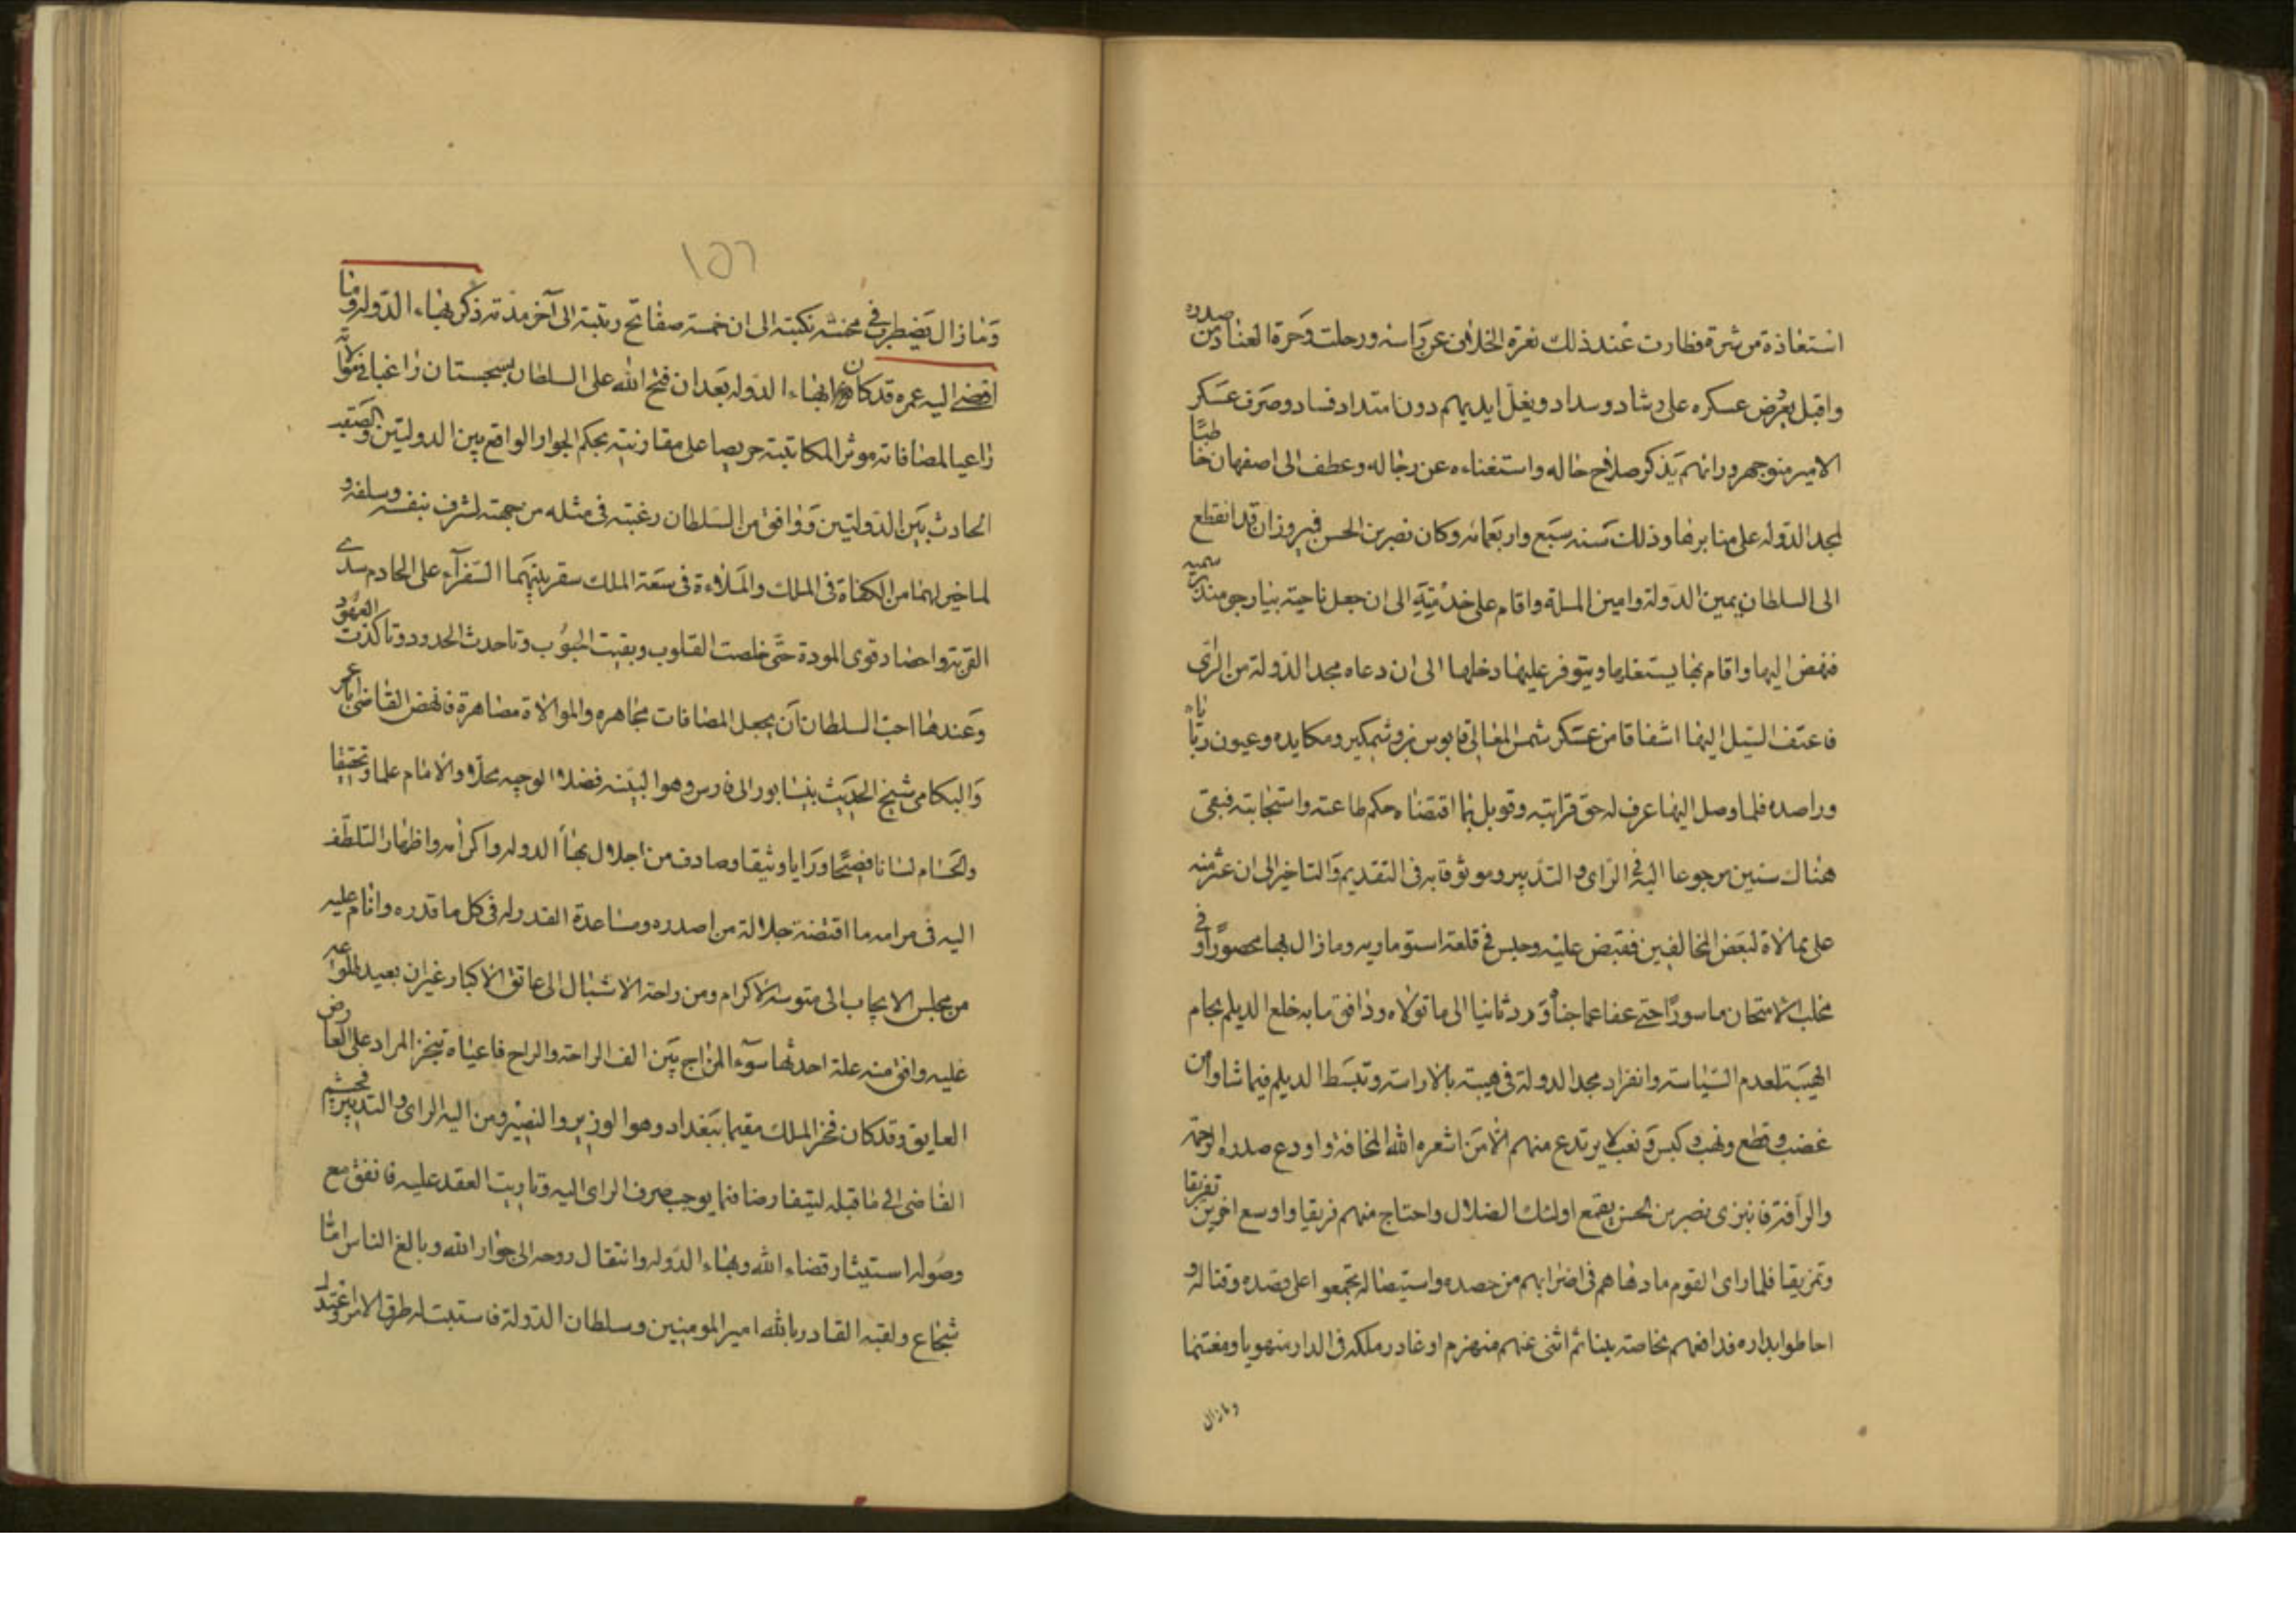 استعاذة من شرة فطارت عند ذلك نعرة الخلاف عن راسه ورحلت وحرة العناد من صدره
واقبل بعرض عسكره على رشاد وسداد ويغل ايديهم دون امتداد فساد وصرف عسكر
الامير منوجهر ورائهم يذكر صلاح حاله واستغناءه عن رجاله وعطف الى اصفهان خاطبا
لمجد الدولة على منابرها وذلك سنه سبع واربعمائه وكان نصر بن الحسن فيروزان قد انقطع
الى السلطان يمين الدولة وامين الملة واقام على خدمته الى ان جعل ناحية بيار جومند برسمه
فنهض اليها واقام بها يستغلها ويتوفر عليها دخلها الى ان دعاه مجد الدولة من الرى
فاعتف السيل اليها اشفاقا من عسكر شمس المعالى قابوس بن وشمكير ومكايده وعيون رباياه
وراصده فلما وصل اليها عرف له حق قرابته وقوبل بما اقتضاه حكم طاعته واستجابته فبقى
هناك سنين مرجوعا اليه فى الراى والتدبير وموثوقا به فى التقديم والتاخير الى ان عثر منه
على ممالاة لبعض المخالفين فقبض عليه وحبس فى قلعة استوماريه ومازال بها محصورا وفى
مخلب الامتحان ماسورا حتى عفا عما جناه ورد ثانيا الى ما تولاه ووافق ما به خلع الديلم لجام
الهيبة لعدم السياسة وانفراد مجد الدولة فى هيبته بالاراسته وتبسط الديلم فيما شاوا من
غضب وقطع ونهب وكبس ونعب لا يرتدع منهم الا من اشعره الله المخافة واودع صدره الرحمة
والرأفة فانبرى نصر بن الحسن بقمع اولئك الضلال واحتاج منهم فريقا واوسع اخرين تفريقا
وتمزيقا فلما راى القوم ما دهاهم فى اضرابهم من حصده واستيصاله تجمعوا على قصده وقتاله و
احاطوا بداره فدافعهم بخاصته بينا ثم اثنى عنهم منهزم او غادر ملكه فى الدار منهوبا ومغتنما
ومازال
١٥٦
ومازال يضطرب فى محنته نكبته الى ان خمسته صفائح ربتبته الى آخر مدته ذكر بهاء الدوله وما
افضى اليه عمره قد كان بهاء الدوله بعد ان فتح الله على السلطان بسجستان راغبا فى موالاته
راعيا لمصافاته موثرا لمكاتبته حريصا على مقاربته بحكم الجوار الواقع بين الدولتين والصقب
الحادث بين الدولتين ووافق من السلطان رغبته فى مثله من جهته لشرف بنفسه وسلفه و
لما خير لهما من الكفاة فى الملك والملاءة فى سعة الملك سفر بينهما السفرآء على الحادم سدى
القربة واحضاد قوى المودة حتى خلصت القلوب وبقيت الجيوب وتاحدث الحدود وتاكدت العهود
وعندها احب السلطان آن يجعل المصافات مجاهره والموالاة مصاهرة فانهض القاضى اباعمر
والبكامى شيخ الحديث بنيسابور الى فارس وهو البينه فضلا والوجيه محلا والامام علما وتحقيقا
والحسام لسانا فصيحا ورايا وثيقا وصادف من اجلال بهآ الدوله واكرامه واظهار التلطف
اليه فى مرامه ما اقتضته جلالة من اصدره ومساعدة القدر له فى كل ما قدره واقام عليه
من مجلس الايجاب الى متوسد الاكرام ومن راحة الاشبال الى عاتق الاكبار غير ان بعيد طلوعه
عليه وافق منه علة احدثها سوء المزاج بين الف الراحة والراح فاعياه تنجز المراد على العارض
العايق وقد كان فخر الملك مقيما ببغداد وهو الوزير والنصير ومن اليه الراى والتدبير فجشم
القاضى الى ما قبله ليتفارضا فيما يوجب صرف الراى اليه وتاربت العقد عليه فاتفق مع
وصوله استيثار قضاء الله وبهاء الدوله وانتقال روحه الى جوار الله وبالغ الناس اما
شجاع ولقبه القادر بالله امير المومنين وسلطان الدولة فاستبت له طرق الامر وعتد له